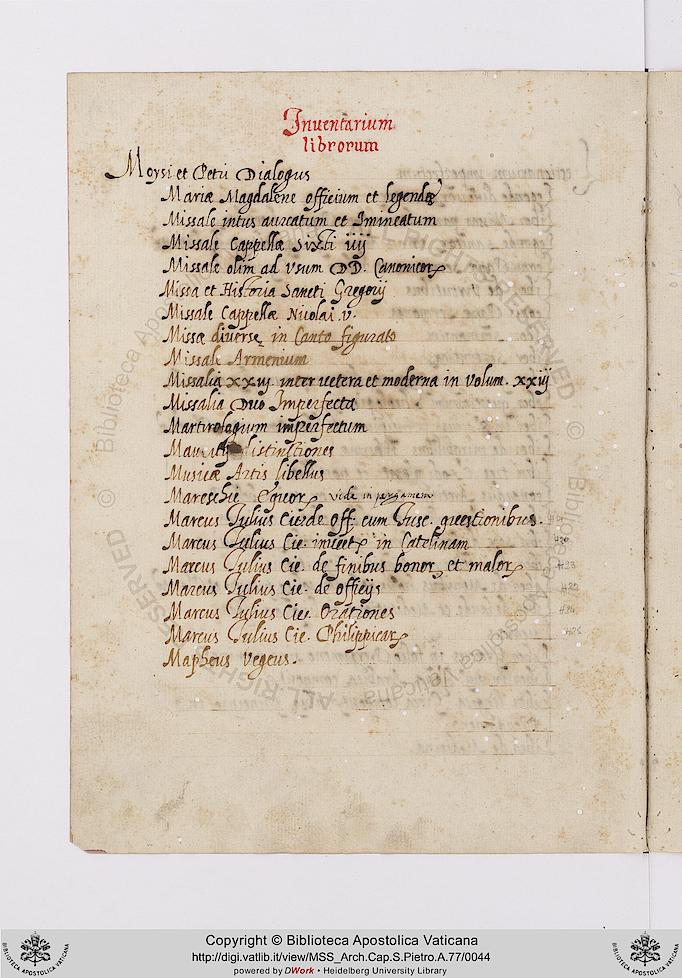 Inuentarium
librorum
Moysi et Petri Dialogus
Mariæ Magdalene officium et legendæ
Missale intus auratum et Imineatum
Missale Cappellæ Sixti iiij
Missale olim ad vsum DD. Canonicor
Missa et Historia Sancti Gregorij
Missale Cappellæ Nicolai v.
Missæ diuersæ in Canto figurato
Missale Armenium
Missalia xxvj. inter uetera et moderna in volum. xxiij
Missalia Duo Imperfecta
Martirologium imperfectum
distinctiones
Musicæ Artis libellus
Mareschie Equor vide in pergamen
Marcus Tulius Cic. de Off. cum Tusc. questionibus.
Marcus Tulius Cic. inuect in Catelinam 420
Marcus Tulius Cic. de finibus bonor et malor 423
Marcus Tulius Cic. de officijs 422
Marcus Tulius Cic. Orationes 424
Marcus Tulius Cic. Philippicar 425
Mapheus Vegeus.
Copyright © Biblioteca Apostolica Vaticana
http://digi.vatlib.it/view/MSS_Arch.Cap.S.Pietro.A.77/0044
powered by DWork • Heidelberg University Library